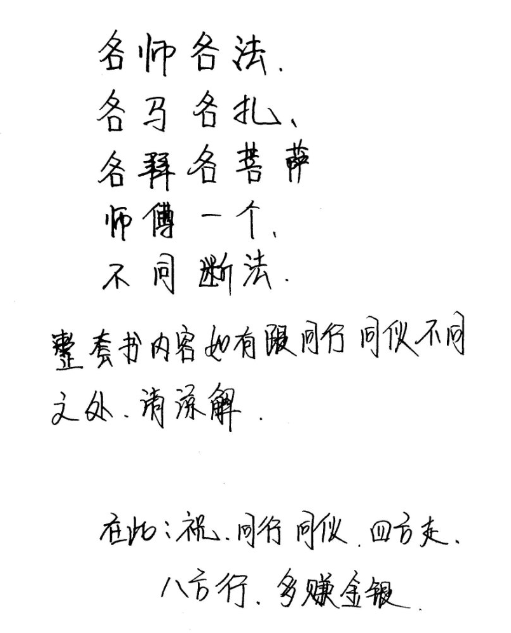 各师各法.
各马各扎、
各拜各菩萨
师傅一个,
不同断法.
整套书内容如有跟同行同仪不同
之处.请谅解.
在此:祝.同行同仪.四方走.
八方行.多赚金银.